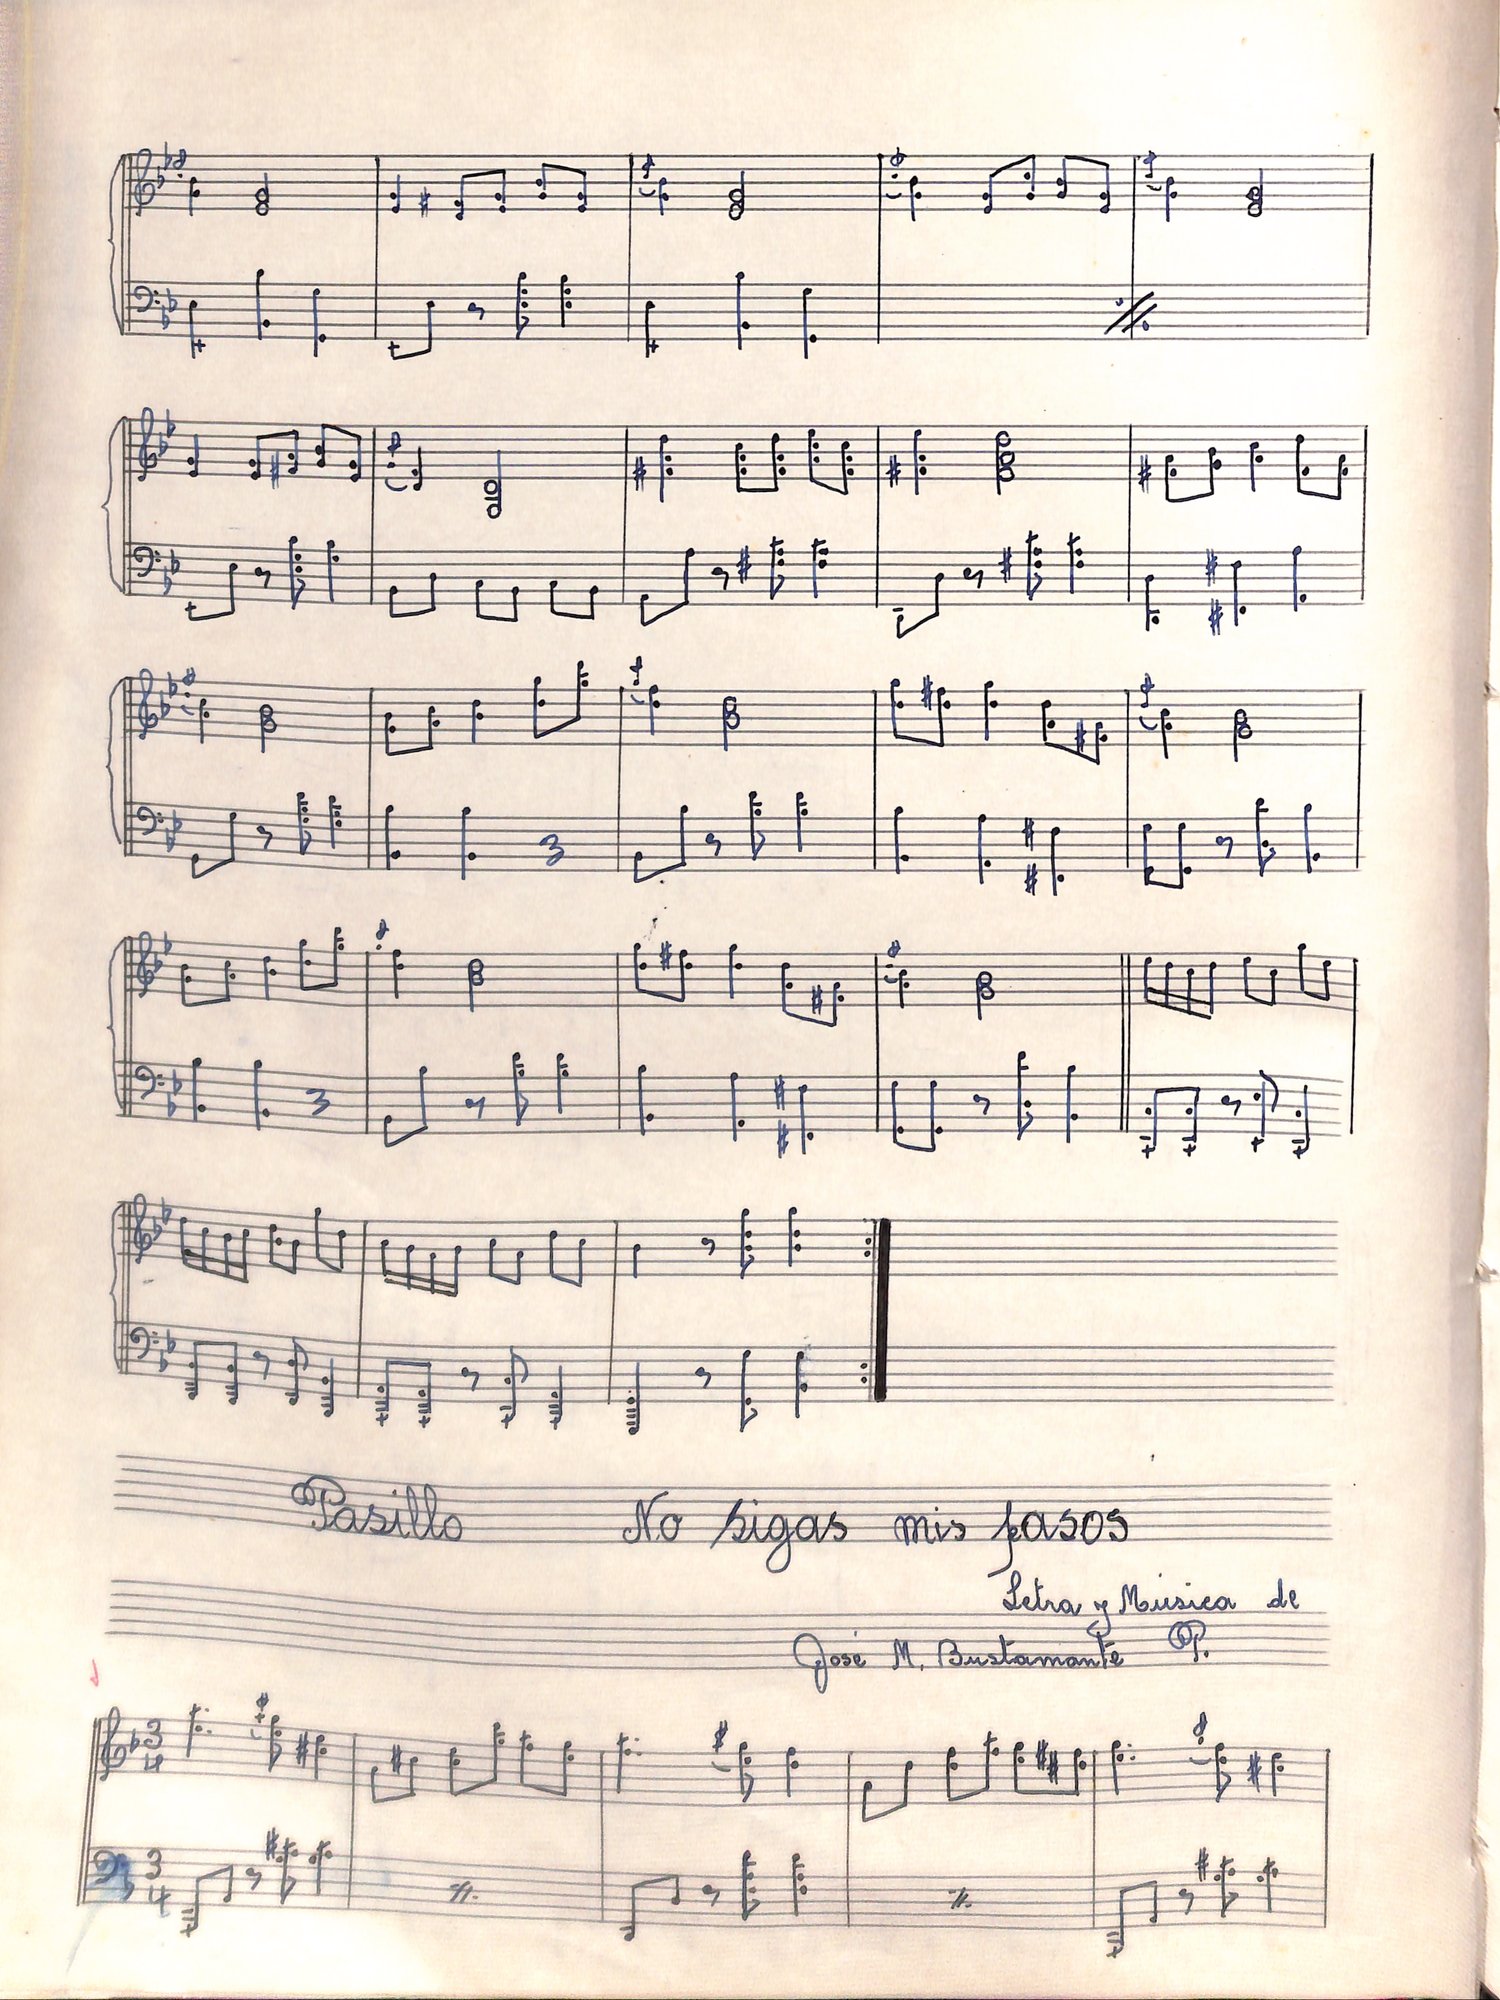 Pasillo No sigas mis pasos
Letra y Música de
José M. Bustamante P.